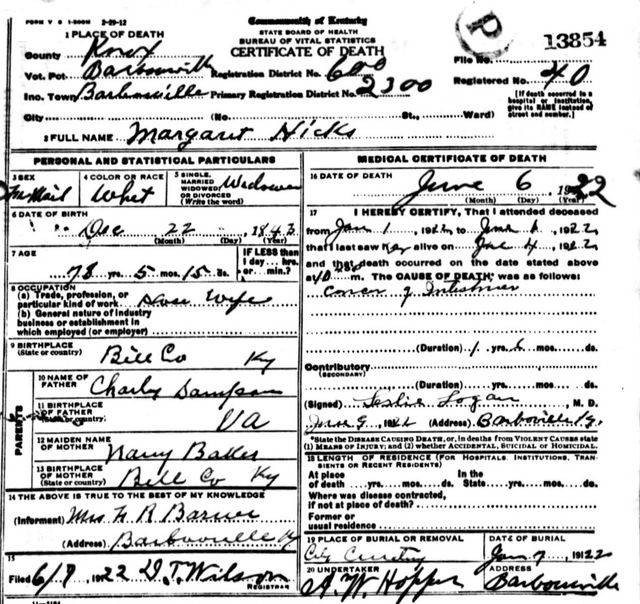 FORM V S 1-500M 2-29-12
Commonwealth of Kentucky
STATE BOARD OF HEALTH
BUREAU OF VITAL STATISTICS
CERTIFICATE OF DEATH
P
13854
1 PLACE OF DEATH
County Knox
File No.
Vot. Pct Barbourville Registration District No. 600
Registered No. 40
Inc. Town Barbourville Primary Registration District No. 2300
[If death occurred in a hospital or institution, give its NAME instead of street and number.]
City (No. St., Ward)
2 FULL NAME Margaret Hicks
PERSONAL AND STATISTICAL PARTICULARS
3 SEX
4 COLOR OR RACE Whet
5 SINGLE, MARRIED WIDOWED, OR DIVORCED (Write the word) Widower
6 DATE OF BIRTH
Dec 22 1843
(Month) (Day) (Year)
7 AGE
78 yrs. 5 mos. 15 ds.
IF LESS than 1 day... hrs. or... min.?
8 OCCUPATION
(a) Trade, profession, or particular kind of work Hose Wife
(b) General nature of industry business or establishment in which employed (or employer)
9 BIRTHPLACE (State or country) Bill Co Ky
PARENTS
10 NAME OF FATHER Charly Sampson
11 BIRTHPLACE OF FATHER (State or country) VA
12 MAIDEN NAME OF MOTHER Nancy Baker
13 BIRTHPLACE OF MOTHER (State or country) Bill Co Ky
14 THE ABOVE IS TRUE TO THE BEST OF MY KNOWLEDGE
(Informant) Mrs
(Address) Barbourville Ky
15
Filed 6/9 1922 D.T. Wilson REGISTRAR
MEDICAL CERTIFICATE OF DEATH
16 DATE OF DEATH
June 6 1922
(Month) (Day) (Year)
17 I HEREBY CERTIFY, That I attended deceased
from Jan 1 1922 to June 6, 1922
that I last saw her alive on June 4, 1922
and that death occurred on the date stated above
at m. The CAUSE OF DEATH* was as follows:
(Duration) 1 yrs. 6 mos. ds.
Contributory (SECONDARY)
(Duration) yrs. mos. ds.
(Signed) Leslie Logan, M. D.
June 9, 1922 (Address) Barbourville Ky.
*State the DISEASE CAUSING DEATH, or, in deaths from VIOLENT CAUSES state (1) MEANS OF INJURY; and (2) whether ACCIDENTAL, SUICIDAL or HOMICIDAL.
18 LENGTH OF RESIDENCE (FOR HOSPITALS, INSTITUTIONS, TRANSIENTS OR RECENT RESIDENTS)
At place of death yrs. mos. ds. In the State yrs. mos. ds.
Where was disease contracted, if not at place of death?
Former or usual residence
19 PLACE OF BURIAL OR REMOVAL
DATE OF BURIAL
7 1922
20 UNDERTAKER
A. W. Hopper
ADDRESS
Barbourville